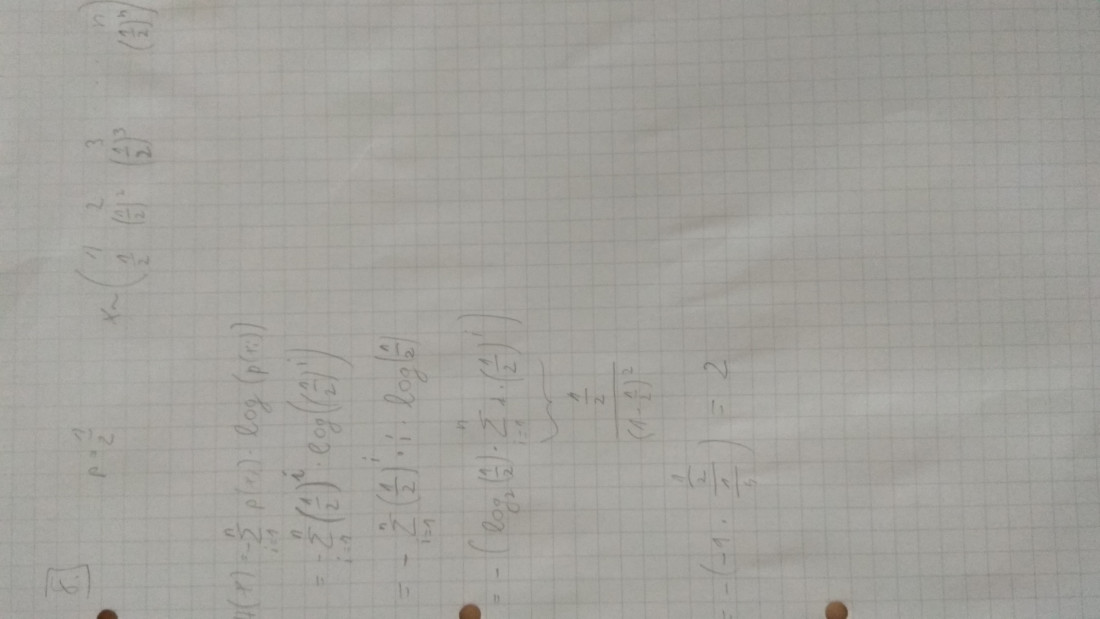 8.
p = 1/2 X ~ ( 1 2 3 . . n )
( 1/2 (1/2)^2 (1/2)^3 (1/2)^n )
H(X) = -∑_{i=1}^{n} p(xi) · log(p(xi))
= -∑_{i=1}^{n} (1/2)^i · log((1/2)^i)
= - ∑_{i=1}^{n} (1/2)^i · i · log(1/2)
= - (log_2(1/2) · ∑_{i=1}^{n} i · (1/2)^i)
(1/2) / (1-1/2)^2
= -(-1 · (1/2)/(1/4)) = 2